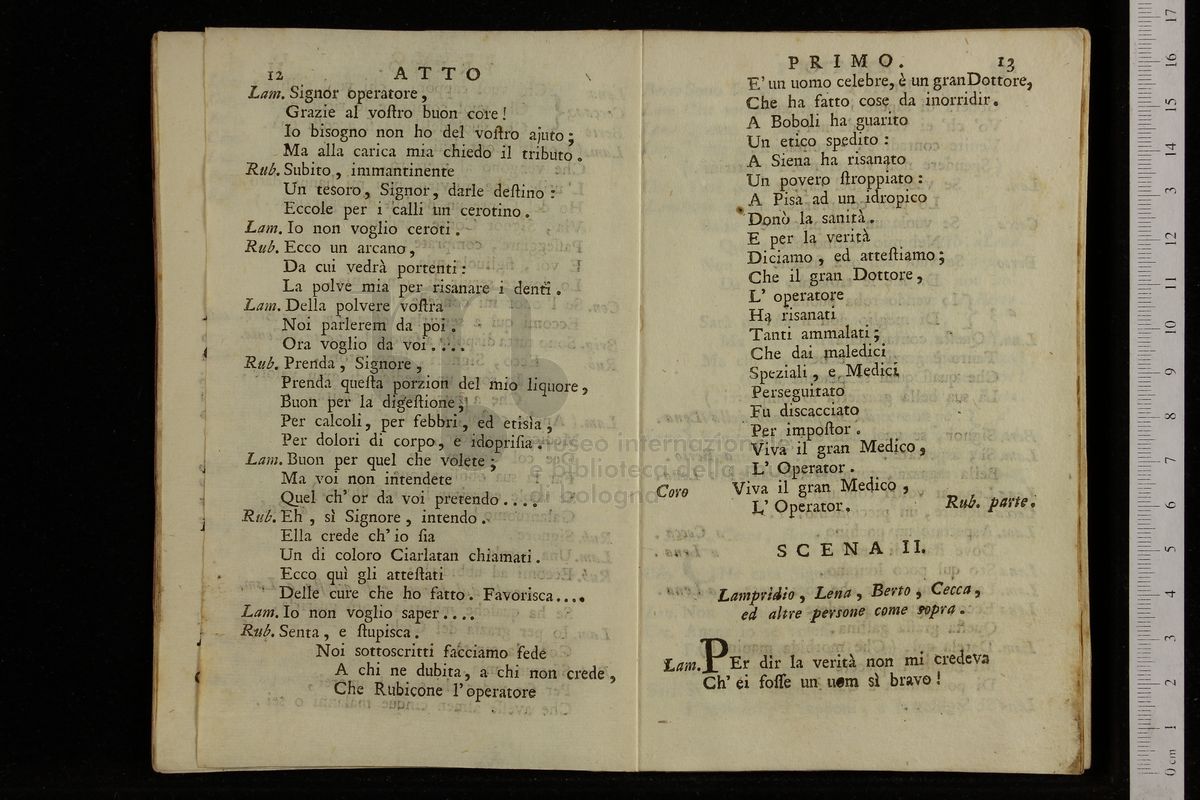 12 ATTO
Lam. Signor operatore,
Grazie al voſtro buon core!
Io bisogno non ho del voſtro ajuto;
Ma alla carica mia chiedo il tributo.
Rub. Subito, immantinente
Un tesoro, Signor, darle deſtino:
Eccole per i calli un cerotino.
Lam. Io non voglio ceroti.
Rub. Ecco un arcano,
Da cui vedrà portenti:
La polve mia per risanare i denti.
Lam. Della polvere voſtra
Noi parlerem da poi.
Ora voglio da voi....
Rub. Prenda, Signore,
Prenda queſta porzion del mio liquore,
Buon per la digeſtione;
Per calcoli, per febbri, ed etisia,
Per dolori di corpo, e idopriſia.
Lam. Buon per quel che volete;
Ma voi non intendete
Quel ch' or da voi pretendo....
Rub. Eh, sì Signore, intendo.
Ella crede ch' io ſia
Un di coloro Ciarlatan chiamati.
Ecco quì gli atteſtati
Delle cure che ho fatto. Favorisca....
Lam. Io non voglio saper....
Rub. Senta, e ſtupisca.
Noi sottoscritti facciamo fede
A chi ne dubita, a chi non crede,
Che Rubicone l' operatore
PRIMO. 13
E' un uomo celebre, è un gran Dottore,
Che ha fatto cose da inorridir.
A Boboli ha guarito
Un etico spedito:
A Siena ha risanato
Un povero ſtroppiato:
A Pisa ad un idropico
Donò la sanità.
E per la verità
Diciamo, ed atteſtiamo;
Che il gran Dottore,
L' operatore
Ha risanati
Tanti ammalati;
Che dai maledici
Speziali, e Medici
Perseguitato
Fu discacciato
Per impoſtor.
Viva il gran Medico,
L' Operator.
Coro Viva il gran Medico,
L' Operator. Rub. parte.
SCENA II.
Lampridio, Lena, Berto, Cecca,
ed altre persone come sopra.
Lam. PEr dir la verità non mi credeva
Ch' ei foſſe un uom sì bravo!
museo internazionale
e biblioteca della musica
di bologna